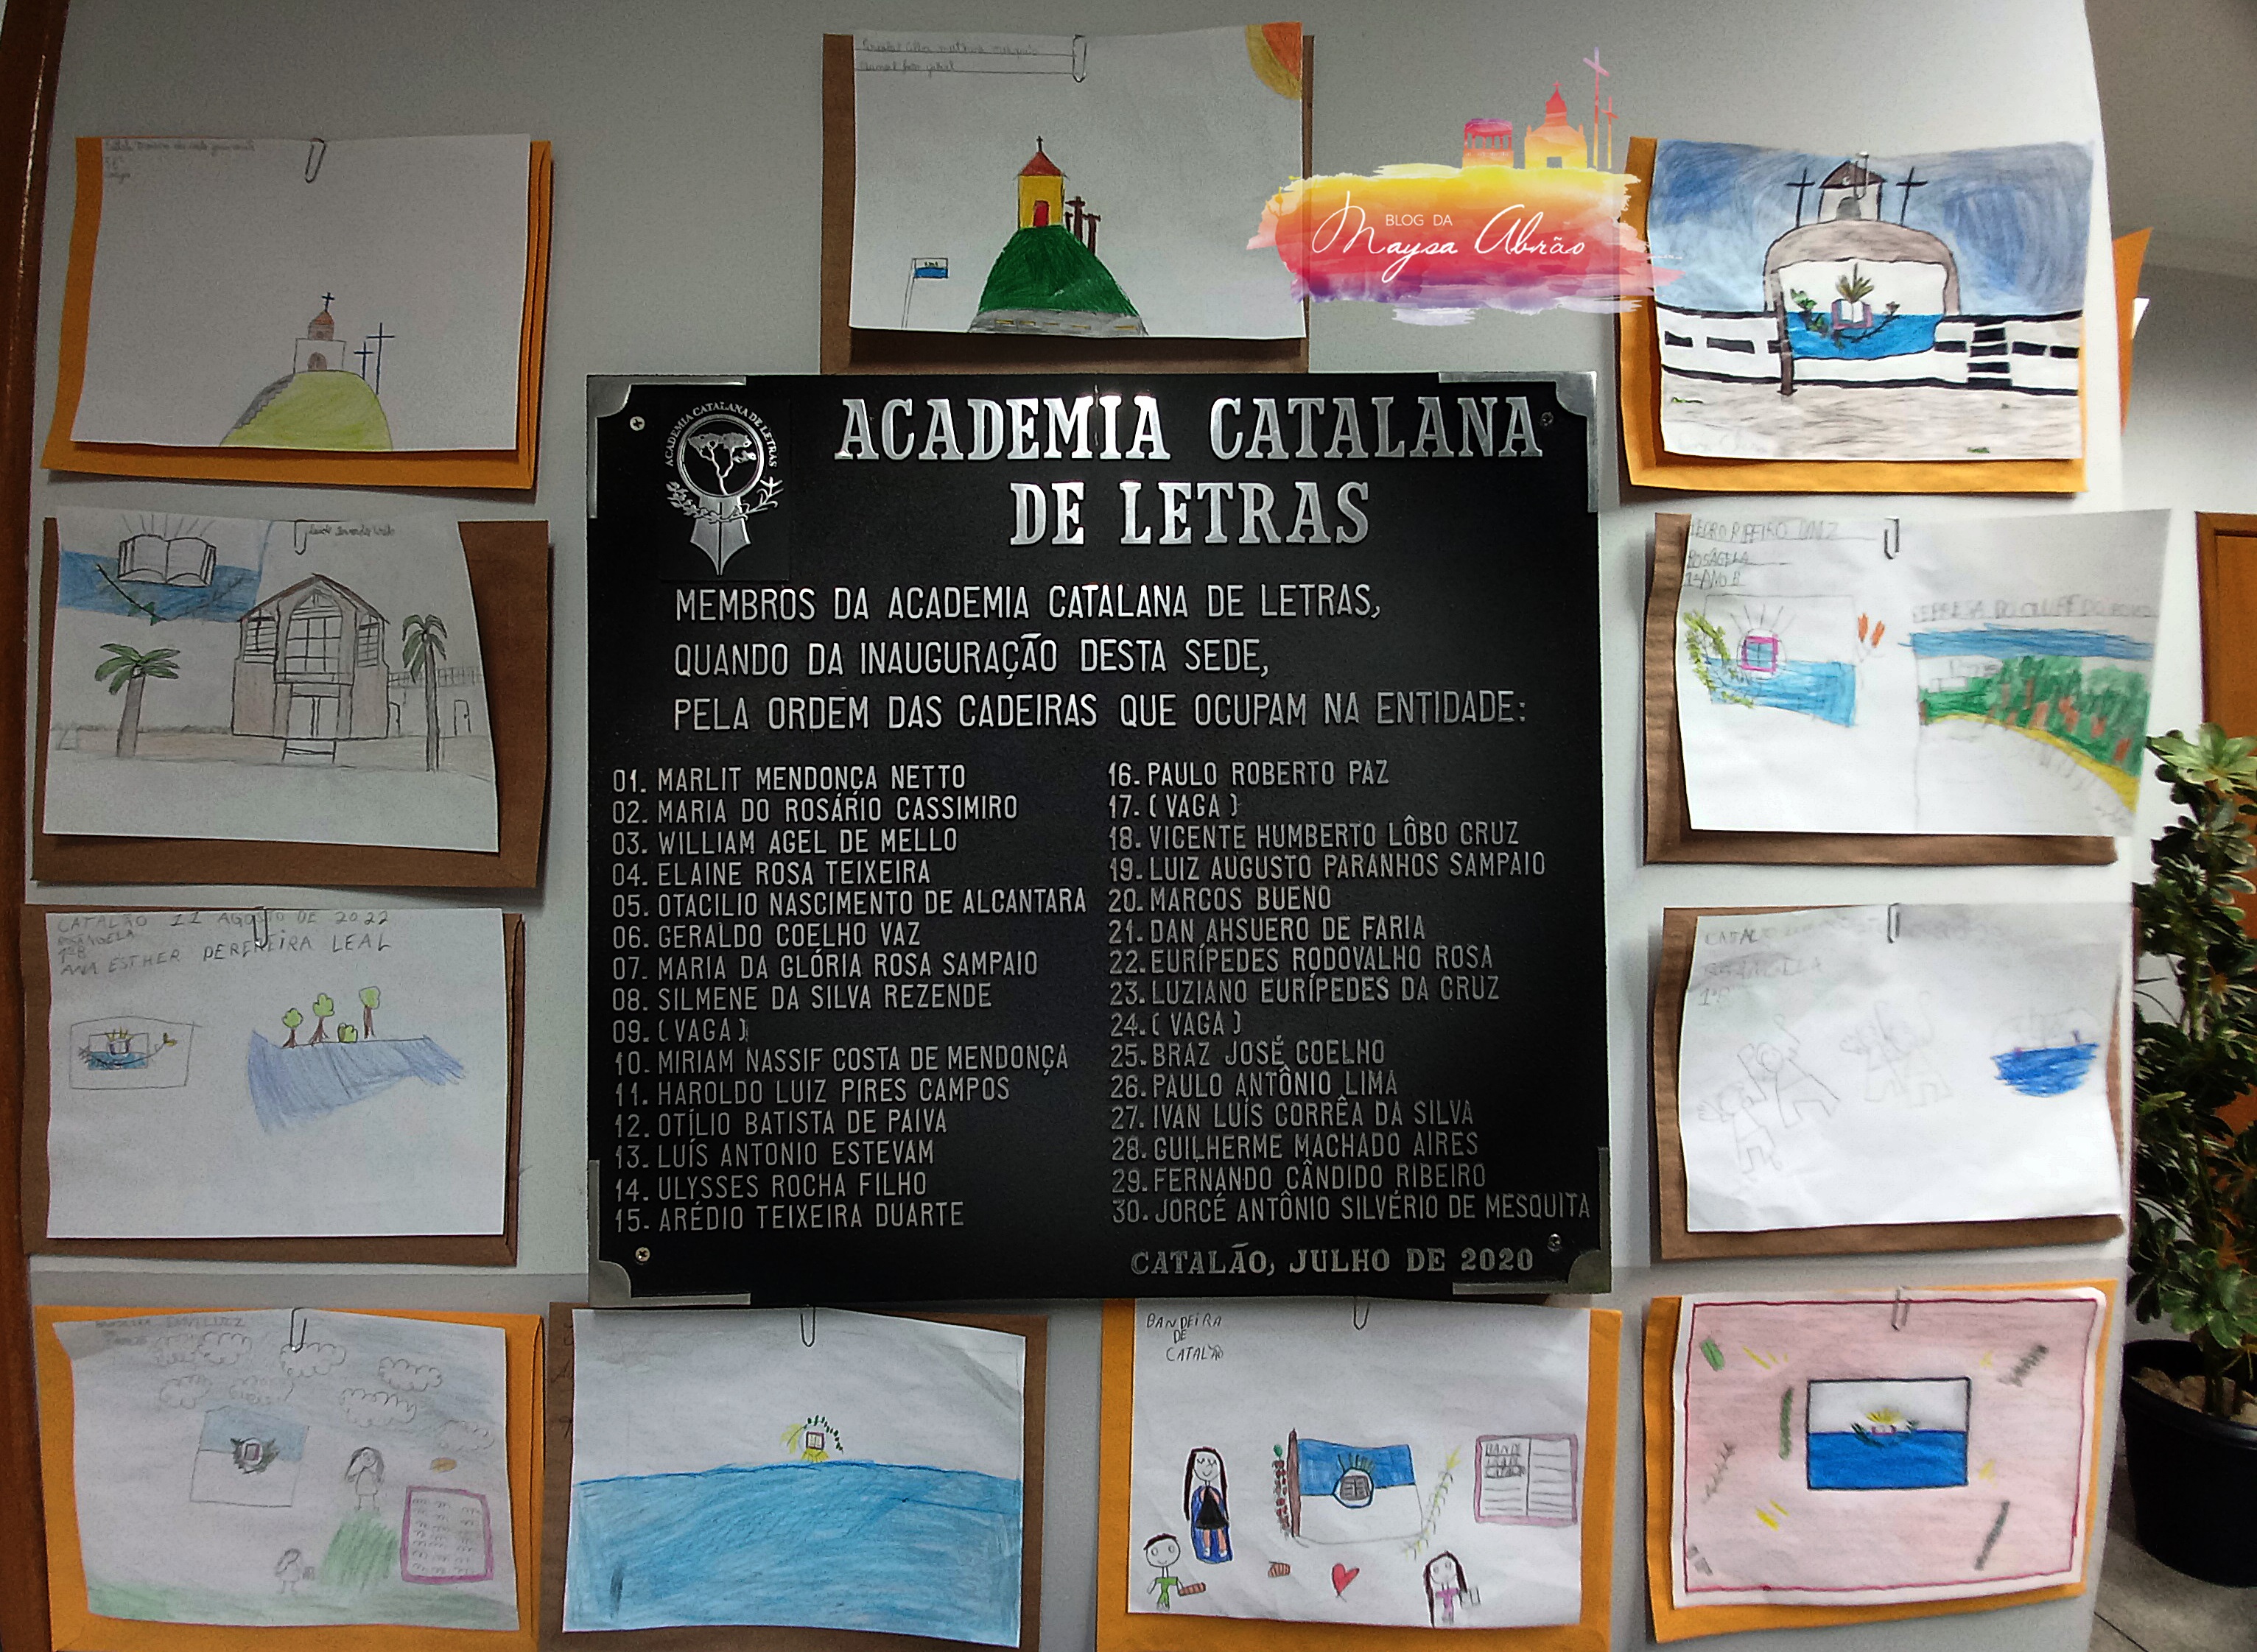 BLOG DA
Maysa Abrão
ACADEMIA CATALANA DE LETRAS
ACADEMIA CATALANA
DE LETRAS
MEMBROS DA ACADEMIA CATALANA DE LETRAS,
QUANDO DA INAUGURAÇÃO DESTA SEDE,
PELA ORDEM DAS CADEIRAS QUE OCUPAM NA ENTIDADE:
01. MARLIT MENDONÇA NETTO
02. MARIA DO ROSÁRIO CASSIMIRO
03. WILLIAM AGEL DE MELLO
04. ELAINE ROSA TEIXEIRA
05. OTACILIO NASCIMENTO DE ALCANTARA
06. GERALDO COELHO VAZ
07. MARIA DA GLÓRIA ROSA SAMPAIO
08. SILMENE DA SILVA REZENDE
09. (VAGA)
10. MIRIAM NASSIF COSTA DE MENDONÇA
11. HAROLDO LUIZ PIRES CAMPOS
12. OTÍLIO BATISTA DE PAIVA
13. LUÍS ANTONIO ESTEVAM
14. ULYSSES ROCHA FILHO
15. ARÉDIO TEIXEIRA DUARTE
16. PAULO ROBERTO PAZ
17. (VAGA)
18. VICENTE HUMBERTO LÔBO CRUZ
19. LUIZ AUGUSTO PARANHOS SAMPAIO
20. MARCOS BUENO
21. DAN AHSUERO DE FARIA
22. EURÍPEDES RODOVALHO ROSA
23. LUZIANO EURÍPEDES DA CRUZ
24. (VAGA)
25. BRAZ JOSÉ COELHO
26. PAULO ANTÔNIO LIMA
27. IVAN LUÍS CORRÊA DA SILVA
28. GUILHERME MACHADO AIRES
29. FERNANDO CÂNDIDO RIBEIRO
30. JORCÉ ANTÔNIO SILVÉRIO DE MESQUITA
CATALÃO, JULHO DE 2020
CATALÃO 11 AGOSTO DE 2022
ROSÂNGELA
1ºB
ANA ESTHER PEREREIRA LEAL
PEDRO RIBEIRO
ROSÂGELA
1º ANO B
BANDEIRA
DE
CATALÃO